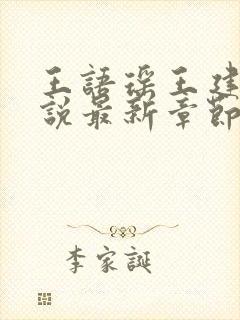 王語瑤王建
說最新章節
李家誕